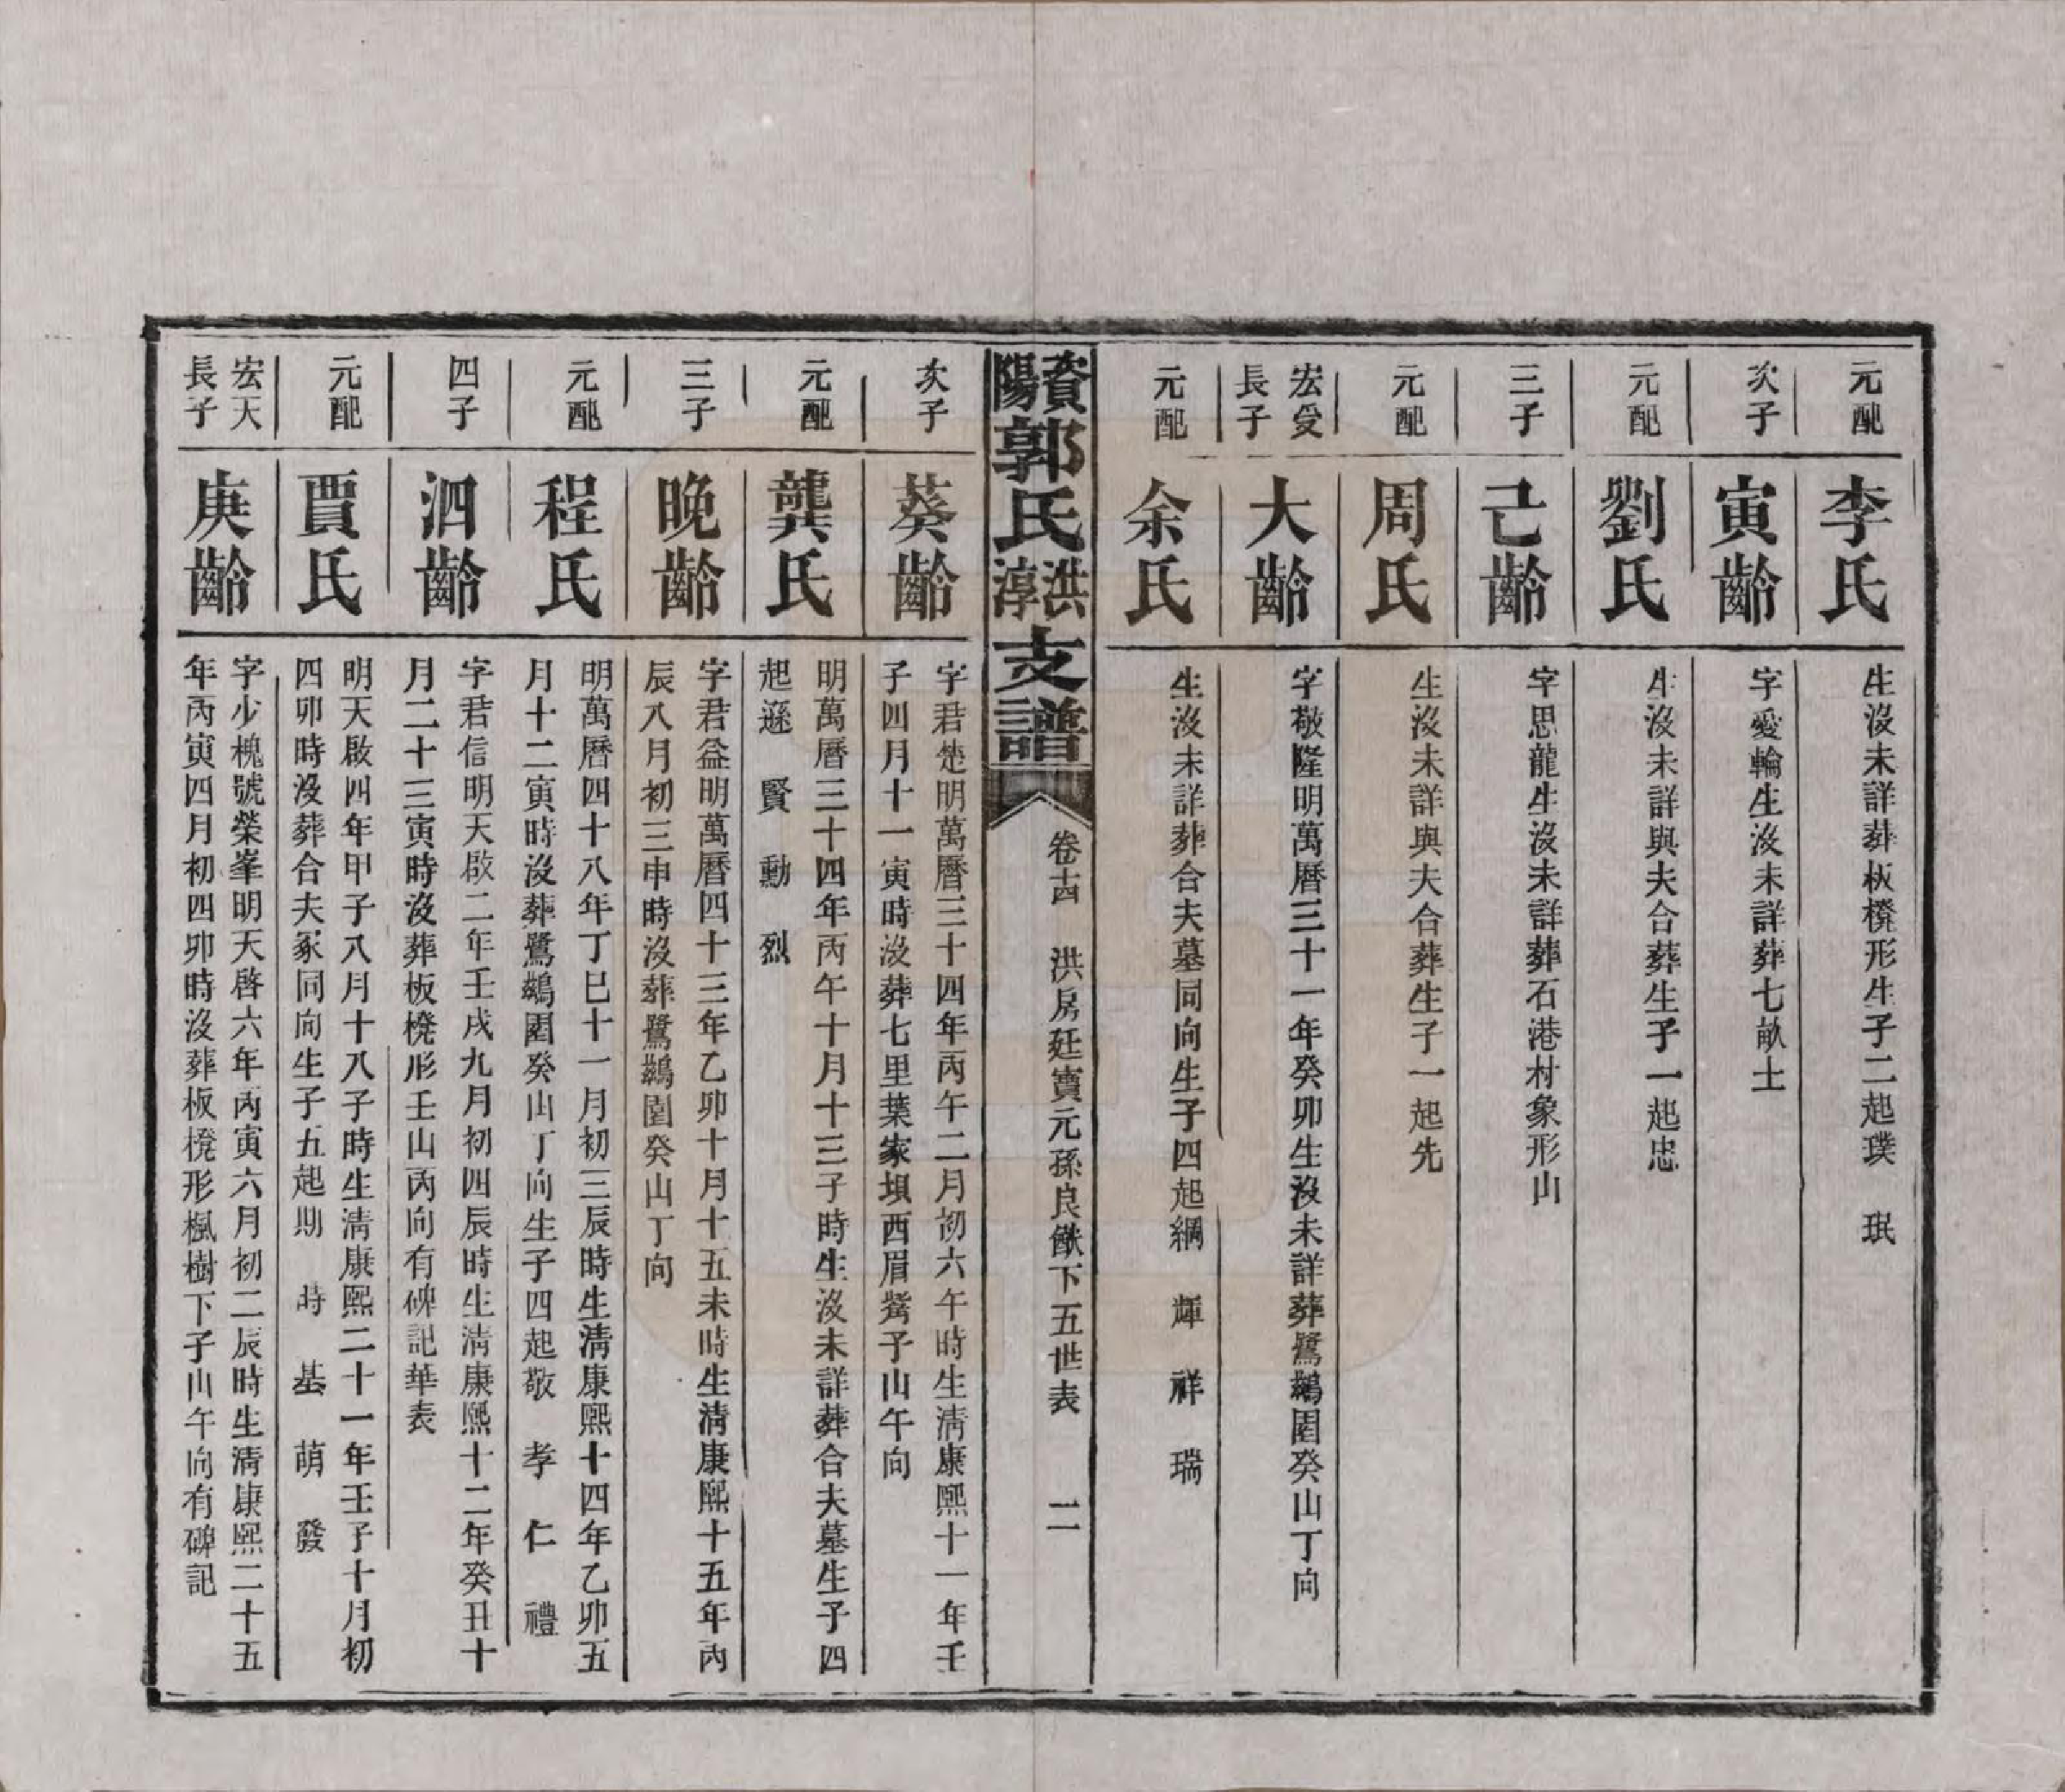 元配
李氏
生沒未詳葬板櫈形生子二起璞 珉
次子
寅齡
字愛輪生沒未詳葬七畝土
元配
劉氏
生沒未詳與夫合葬生子一起忠
三子
己齡
字思龍生沒未詳葬石港村象形山
元配
周氏
生沒未詳與夫合葬生子一起先
宏受
長子
大齡
字敬隆明萬曆三十一年癸卯生沒未詳葬鷺鷀園癸山丁向
元配
余氏
生沒未詳葬合夫墓同向生子四起綱 輝 祥 瑞
資陽郭氏洪淳支譜
卷十四 洪房廷寶元孫良猷下五世表 二
次子
葵齡
字君楚明萬曆三十四年丙午二月初六午時生清康熙十一年壬
子四月十一寅時沒葬七里葉家垻西眉觜子山午向
元配
龔氏
明萬曆三十四年丙午十月十三子時生沒未詳葬合夫墓生子四
起遜 賢 勳 烈
三子
晚齡
字君益明萬曆四十三年乙卯十月十五未時生清康熙十五年丙
辰八月初三申時沒葬鷺鷀園癸山丁向
元配
程氏
明萬曆四十八年丁巳十一月初三辰時生清康熙十四年乙卯五
月十二寅時沒葬鷺鷀園癸山丁向生子四起敬 孝 仁 禮
四子
泗齡
字君信明天啟二年壬戌九月初四辰時生清康熙十二年癸丑十
月二十三寅時沒葬板櫈形壬山丙向有碑記華表
元配
賈氏
明天啟四年甲子八月十八子時生清康熙二十一年壬子十月初
四卯時沒葬合夫冢同向生子五起期 時 基 萌 發
宏天
長子
庚齡
字少槐號榮峯明天啓六年丙寅六月初二辰時生清康熙二十五
年丙寅四月初四卯時沒葬板櫈形楓樹下子山午向有碑記